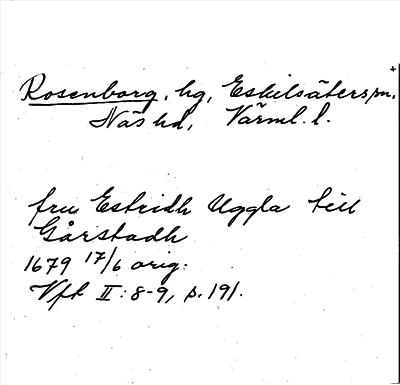 Rosenborg, hg, Eskilsäters sn,
Näs hd, Värml. l.
fru Estridh Uggla till
Gårstadh
1679 17/6 orig.
Vft II: 8-9, s. 191.